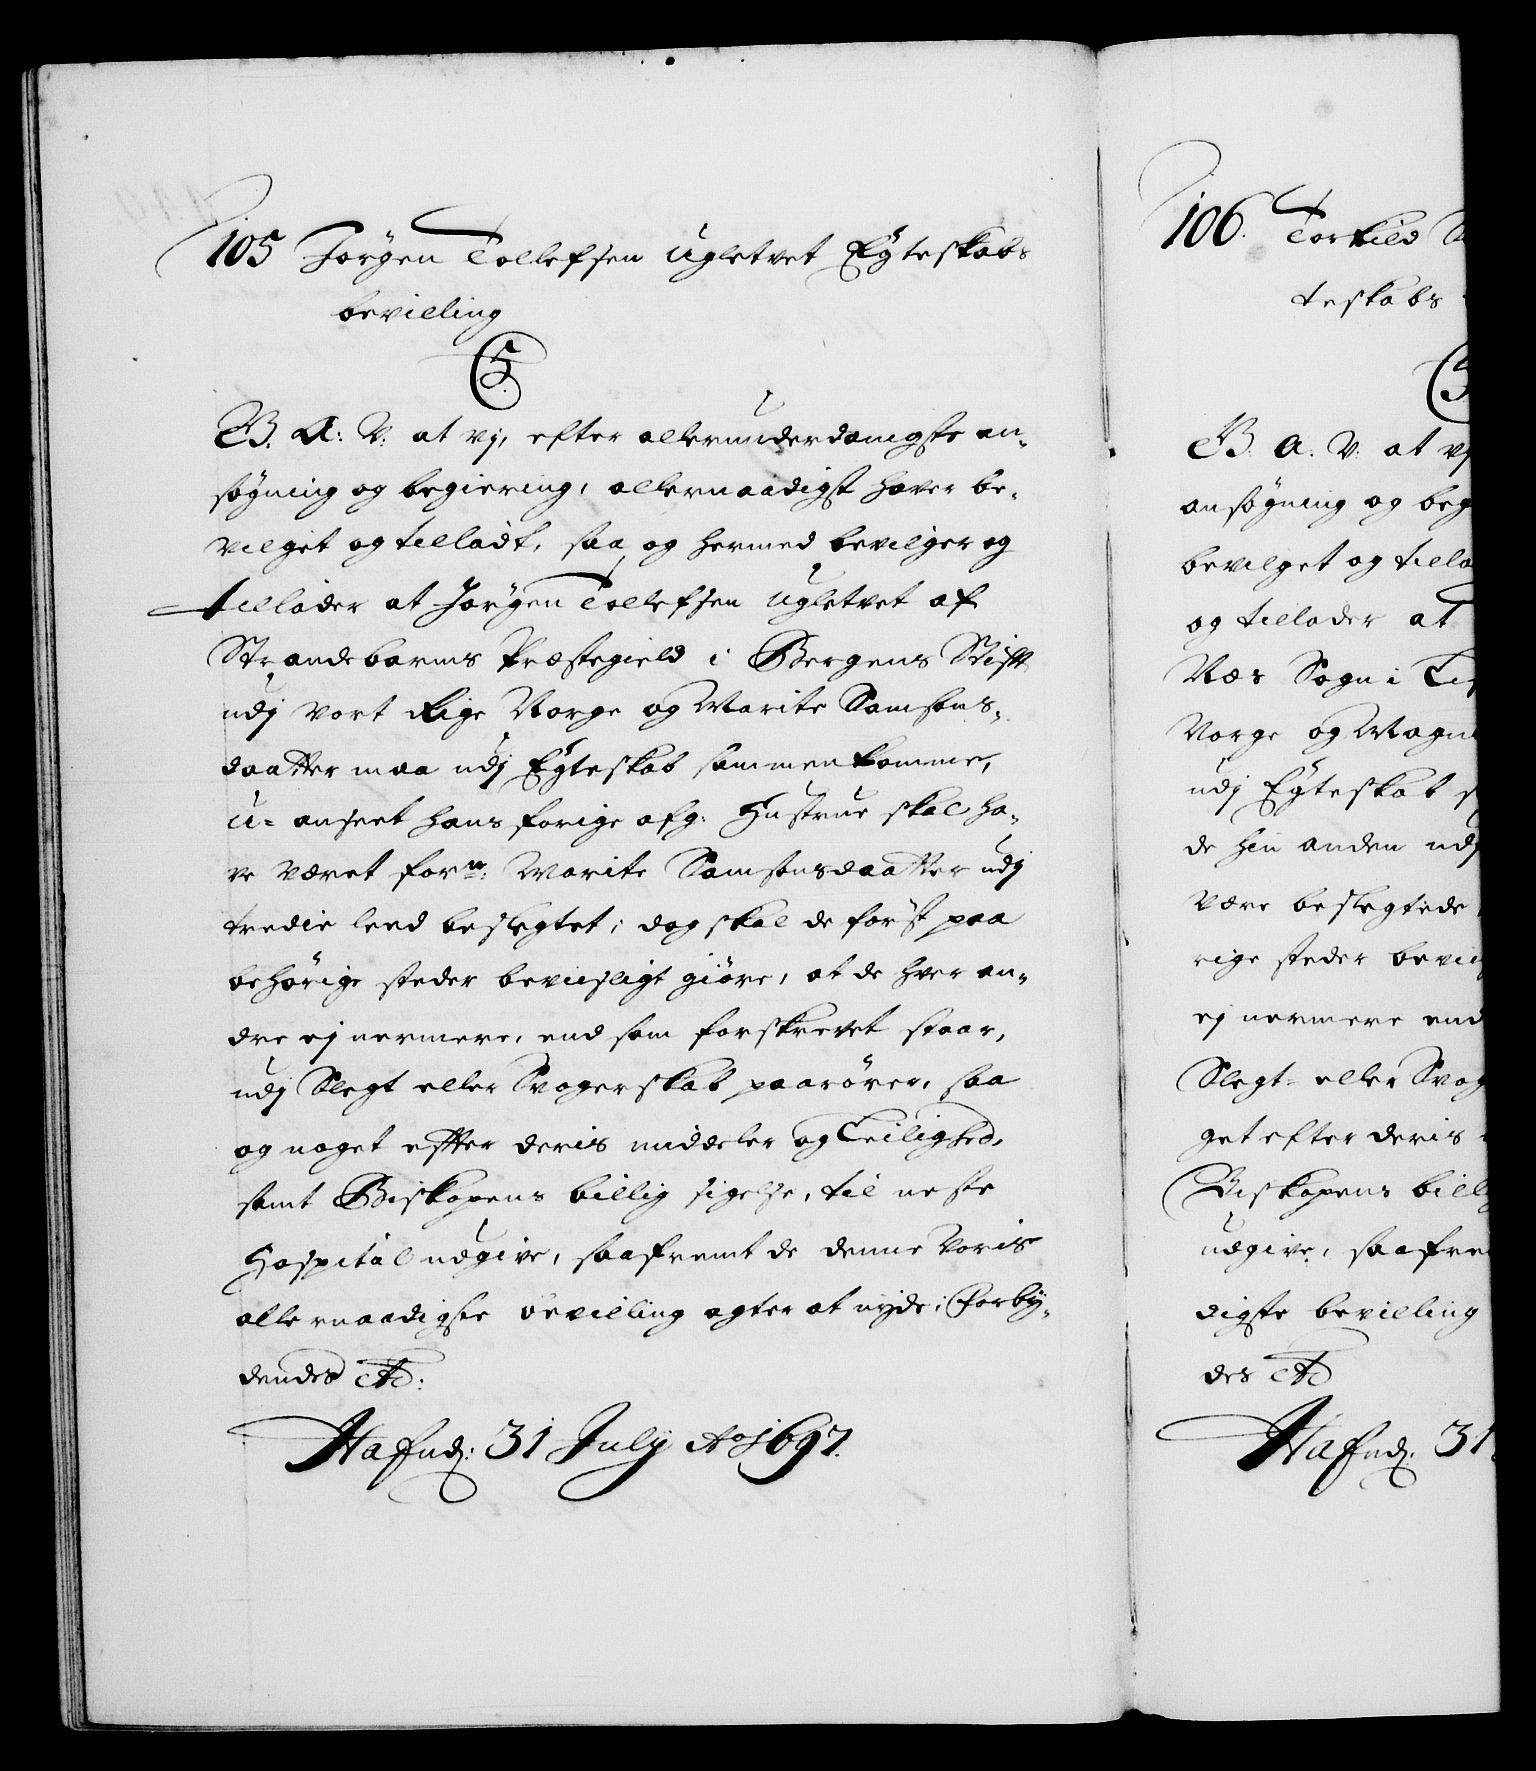 105 Jörgen Tollefsen Ugletvet Egteskabs
bevilling
5.
G. A: V: at vj, efter allerunderdanigste an-
søgning og begiering, allernaadigst haver be-
vilget og tilladt, saa og hermed bevilger og
tillader at Jörgen Tollefsen Ugletvet af
Strandebarms Præstegield i Bergens Stift
udj vort Rige Norge og Marite Samsons-
daatter maa udj Egteskab sammenkomme,
u-anseet hans forige afg: Hustrue skal ha-
ve været forn: Marite Samsonsdaatter udj
tredie leed beslegtet; dog skal de först paa
behörige steder bevisligt giöre, at de hver an-
dre ej nermere, end som forskrevet staar,
udj Slegt eller Svogerskab paarörer, saa
og noget efter deris middeler og Leilighed,
samt Biskopens billig sigelse, til neste
Hospital udgive, saafremt de denne Voris
allernaadigste bevilling agter at nyde; Forby-
dendes etc:
Hafnd: 31 July Ao 1697.
106. Torkild
teskabs
B. A. V. at vj
ansøgning og beg
bevilget og tilla
og tillader at
Næs Sogn i
Norge og Magn
udj Egteskab s
de hin anden udj
være beslegtede
rige steder bevi
ej nermere end
Slegt- eller Svog
get efter deris
Biskopens bill
udgive, saafre
digste bevilling
des etc
Hafnd: 31